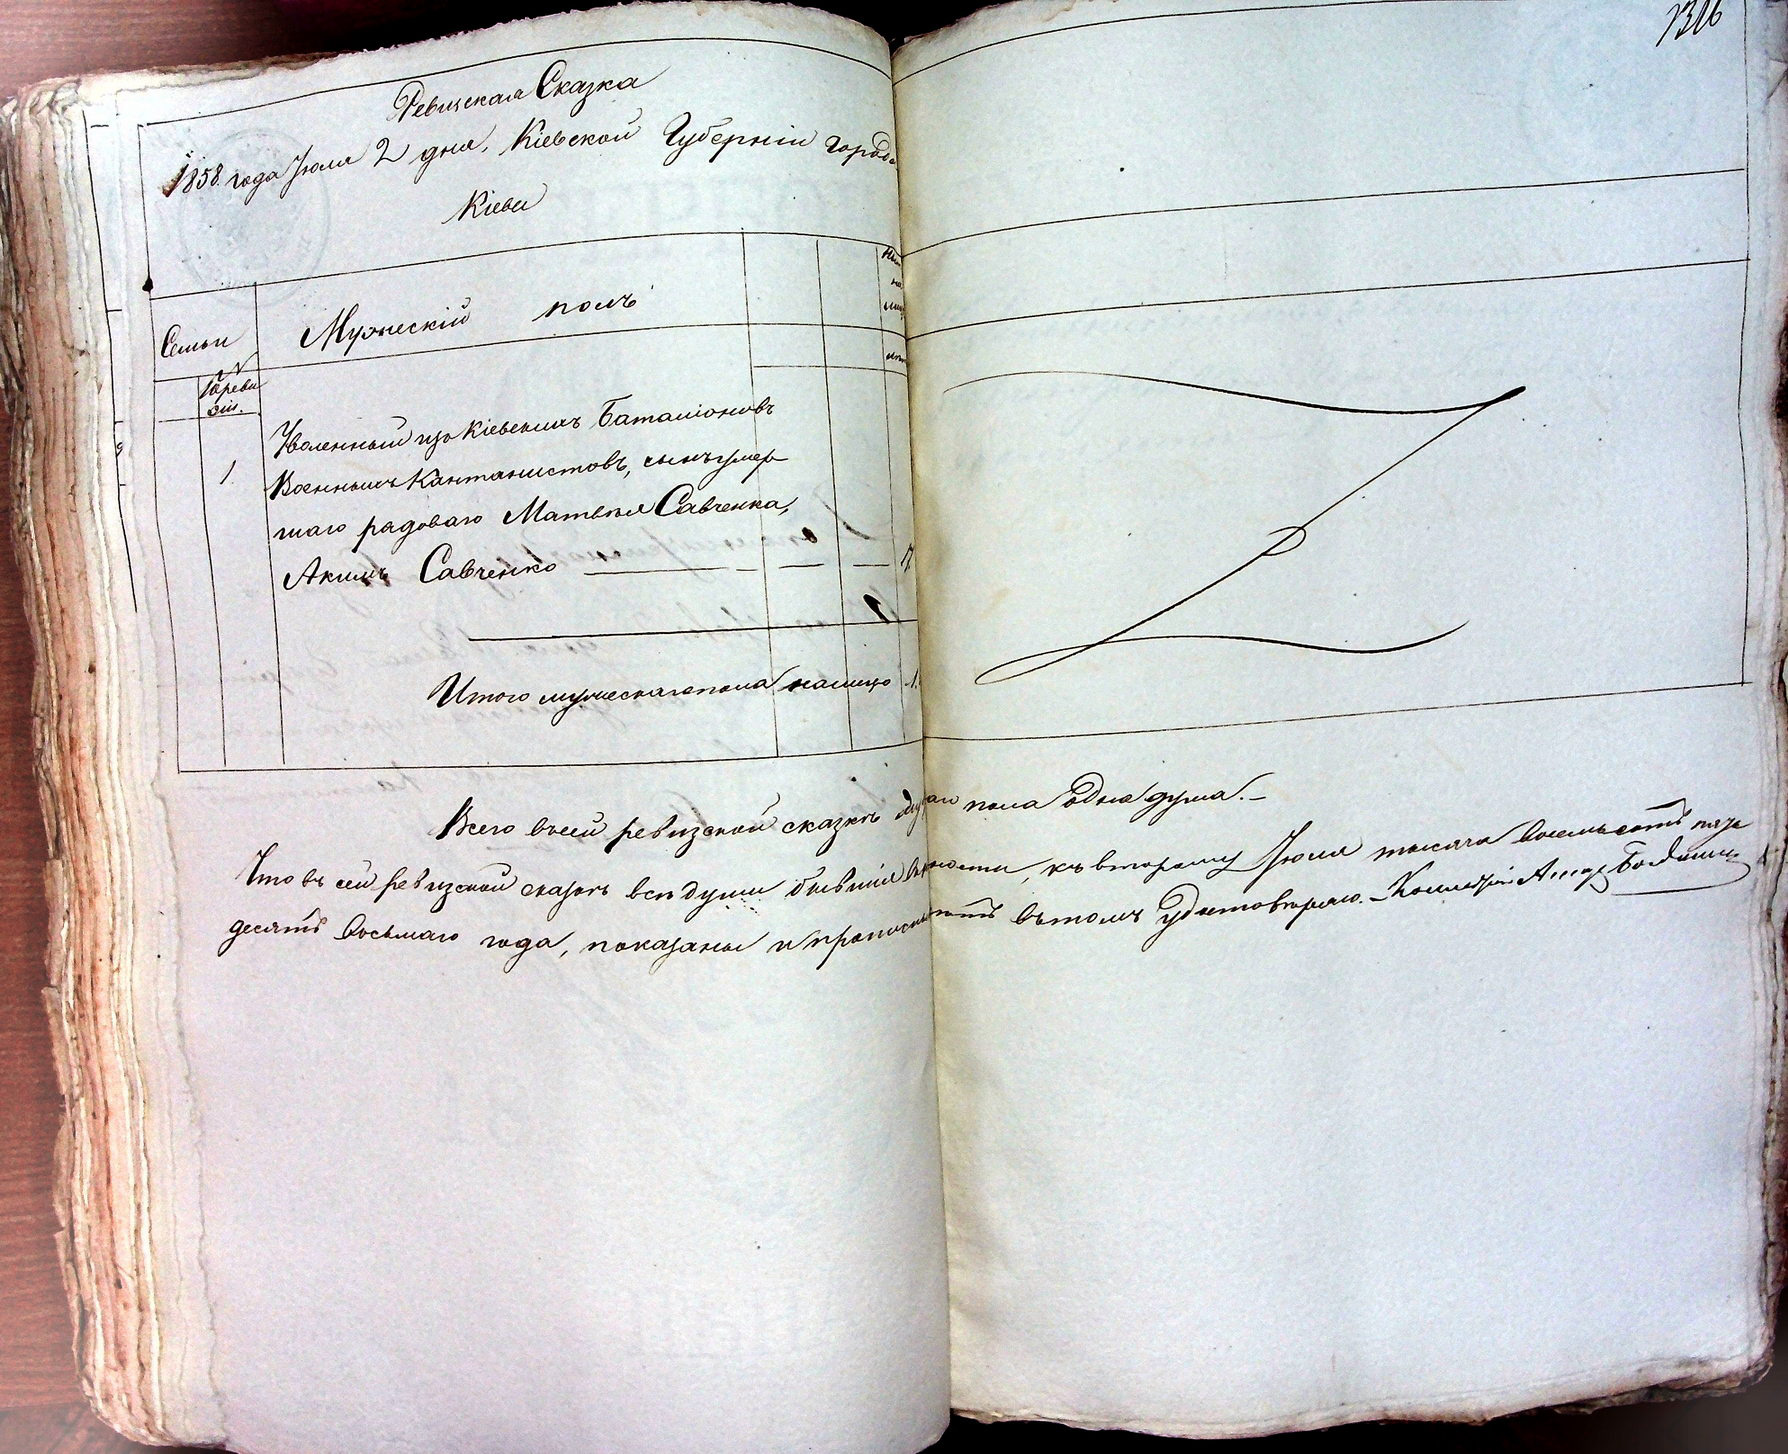 1306
Ревизская Сказка
1858 года Іюля 2 дня, Кіевской Губерніи города
Кіева
Семьи
Мужескій полъ
№
10 реви
зіи.
1
Уволенный изъ Кіевскихъ Баталіоновъ
Военныхъ Кантанистовъ, сынъ умер
шаго рядоваго Матвѣя Савченка,
Акимъ Савченко
Итого мужескаго пола налицо 1.
Всего въ сей ревизской сказкѣ пола одна душа.
Что въ сей ревизской сказкѣ всѣ души бывшія въ, къ второму Іюля тысяча восемьсотъ пять
десятъ восьмаго года, показаны и въ томъ удостовѣряю.